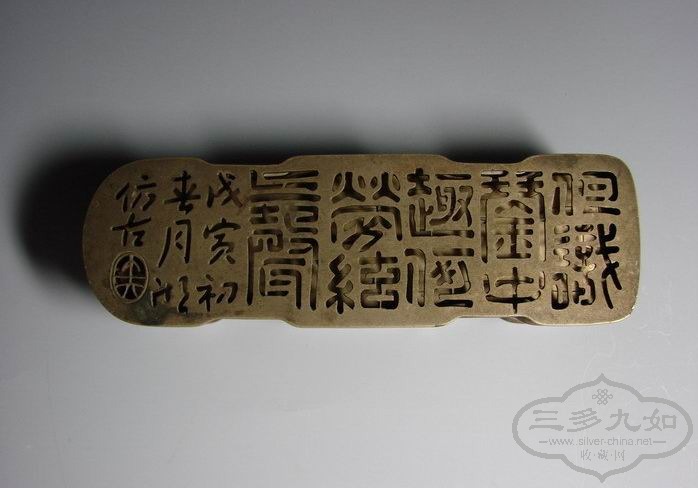 但識
琴中
趣何
勞絃
上聲
戊寅初
春月湖
仿古
三多九如
www.silver-china.net
收·藏·网